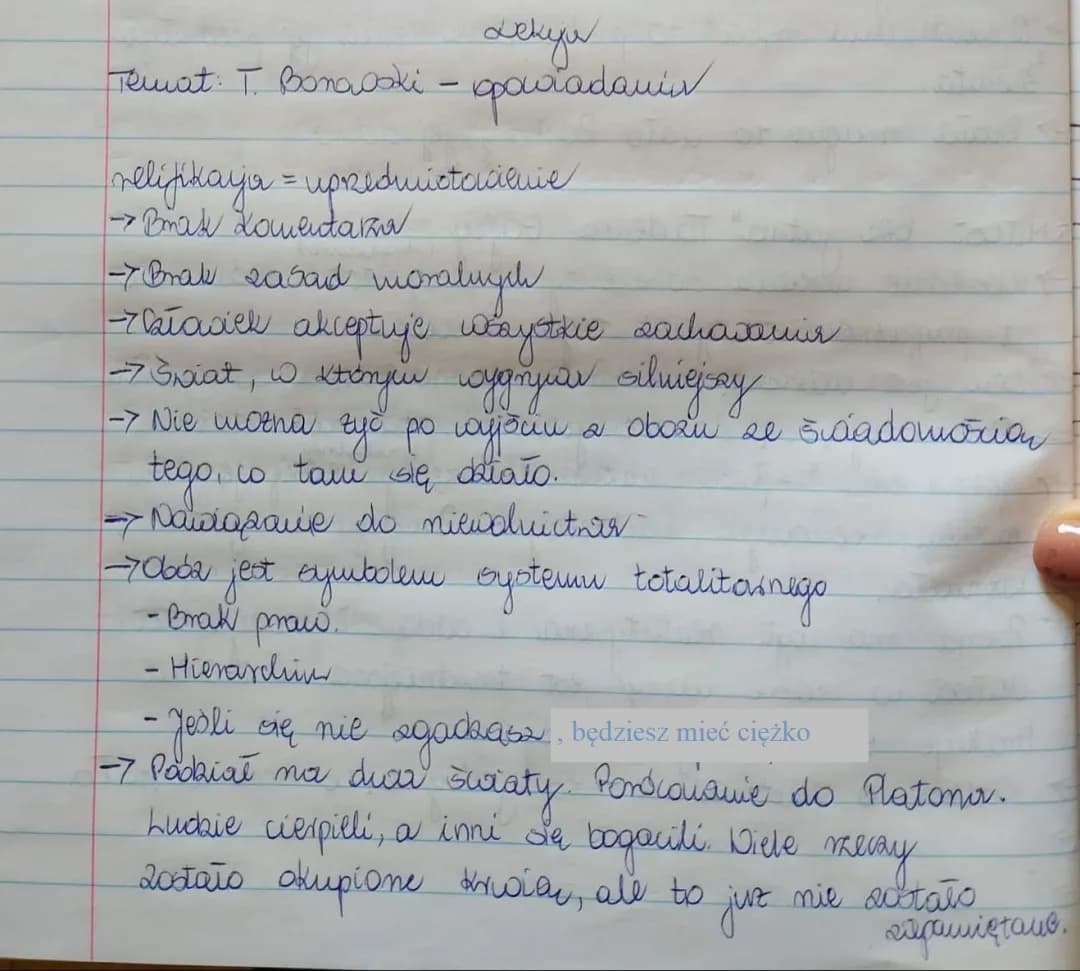 Lekcja
Temat: T. Borowski - opowiadania
relifikacja = uprzedmiotowienie
→ Brak komentarza
→ Brak zasad moralnych
→ Człowiek akceptuje wszystkie zachowania
→ Świat, w którym wygrywa silniejszy
→ Nie można żyć po wyjściu z obozu ze świadomością
tego, co tam się działo.
→ Nawiązanie do niewolnictwa
→ Obóz jest symbolem systemu totalitarnego
- Brak praw.
- Hierarchia
- Jeśli się nie zgadzasz, będziesz mieć ciężko
→ Podział na dwa światy. Porównanie do Platona.
Ludzie cierpieli, a inni się bogacili. Wiele rzeczy
zostało okupione krwią, ale to już nie zostało
zapamiętane.